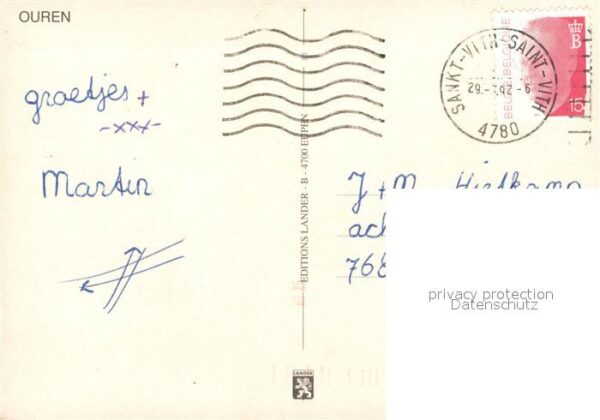 OUREN
groetjes +
-xxx-
Martin
EDITIONS LANDER - B - 4700 EUPEN
LANDER
SANKT-VITH-SAINT-VITH
4780
BELGIE-BELGIQUE
B
15
J + M
ach
768
privacy protection
Datenschutz